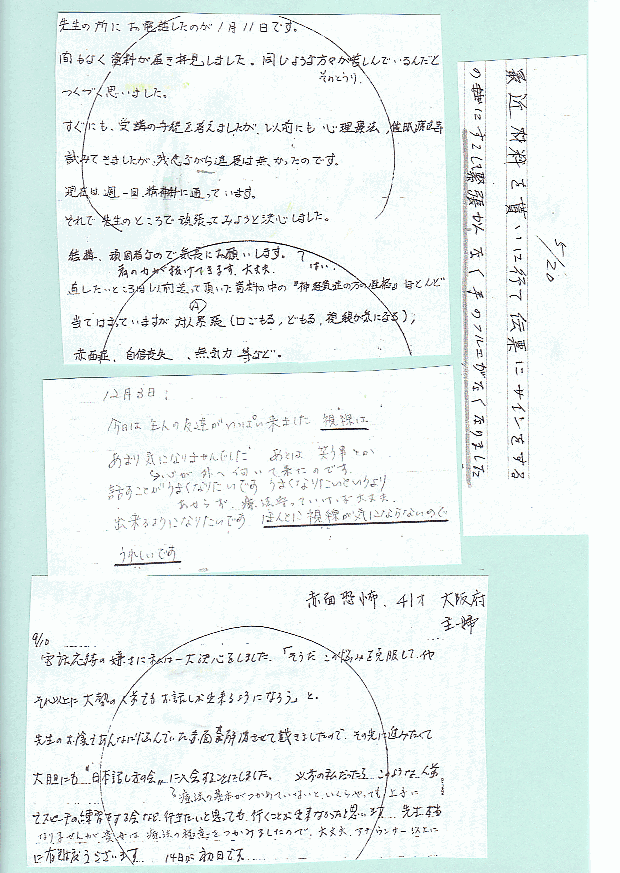 先生の所にお電話したのが1月11日です。
間もなく資料が届き拝見しました。同じような方々が苦しんでいるんだと
そのとうり、
つくづく思いました。
すぐにも、受講の手続を考えましたが、以前にも心理療法、催眠療法等
試みてきましたが、残念ながら進展は無かったのです。
現在は週一回、精神科に通っています。
それで先生のところで頑張ってみようと決心しました。
結構、頑固者なので気長にお願いします。
はい。
肩の力が抜けてきます、大丈夫、
直したいところは以前送って頂いた資料の中の『神経質症の方の性格』ほとんど
A
当てはまっていますが対人緊張(口ごもる、どもる、視線が気になる)、
赤面症、自信喪失、無気力等など。
5/20
最近材料を貰いに行って伝票にサインをする
の時にすこし緊張がなく手のフルエがなくなりました
12月3日:
今日は主人の友達がいっぱい来ました 視線は
あまり気になりませんでした あとは 笑う事とか
が外へ向いて来たのです。
話すことがうまくなりたいです うまくなりたいというより
あせらず、療法守っていけば大丈夫、
出来るようになりたいです ほんとに視線が気にならないので
うれしいです
赤面恐怖、41才 大阪府
主婦
9/10
電話応待の嫌さに私は一大決心をしました。「そうだ この悩みを克服して、
それ以上に大勢の人前でもお話しが出来るようになろう」と。
先生のお陰であんなに悩んでいた赤面を解消させて戴きましたので、その先に進みたくて
大胆にも"日本話し方の会"に入会することにしました。 以前の私だったら このような人前
療法の基本がつかめていないと、いくらやっても上手に
でスピーチの練習をする会など、行きたいと思っても、行くことが出来なかったと思います。先生
なりませんが 貴女は 療法の極意をつかみましたので、大丈夫、アナウンサー以上に
に有難度うございます 14日が初日です